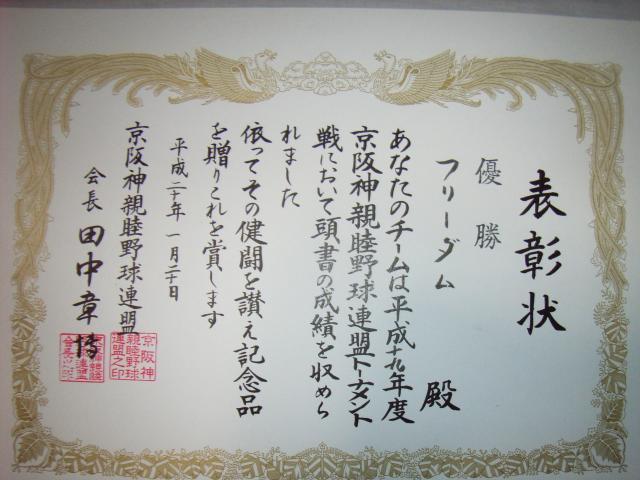 表彰状
優勝
フリーダム 殿
あなたのチームは平成十九年度
京阪神親睦野球連盟トーナメント
戦において頭書の成績を収めら
れました
依ってその健闘を讃え記念品
を贈りこれを賞します
平成二十年一月二十日
京阪神親睦野球連盟
会長 田中章博
京阪神
親睦野球
連盟之印